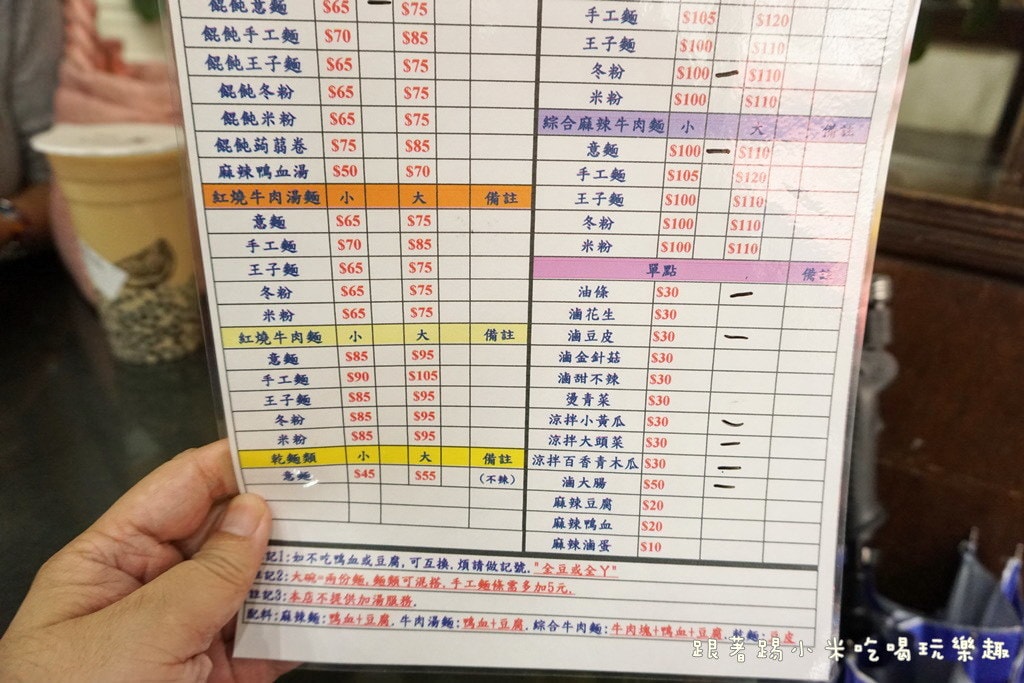 餛飩意麵 $65 $75
餛飩手工麵 $70 $85
餛飩王子麵 $65 $75
餛飩冬粉 $65 $75
餛飩米粉 $65 $75
餛飩蒟蒻卷 $75 $85
麻辣鴨血湯 $50 $70
紅燒牛肉湯麵 小 大 備註
意麵 $65 $75
手工麵 $70 $85
王子麵 $65 $75
冬粉 $65 $75
米粉 $65 $75
紅燒牛肉麵 小 大 備註
意麵 $85 $95
手工麵 $90 $105
王子麵 $85 $95
冬粉 $85 $95
米粉 $85 $95
乾麵類 小 大 備註
意麵 $45 $55 (不辣)
手工麵 $105 $120
王子麵 $100 $110
冬粉 $100 $110
米粉 $100 $110
綜合麻辣牛肉麵 小 大 備註
意麵 $100 $110
手工麵 $105 $120
王子麵 $100 $110
冬粉 $100 $110
米粉 $100 $110
單點 備註
油條 $30
滷花生 $30
滷豆皮 $30
滷金針菇 $30
滷甜不辣 $30
燙青菜 $30
涼拌小黃瓜 $30
涼拌大頭菜 $30
涼拌百香青木瓜 $30
滷大腸 $50
麻辣豆腐 $20
麻辣鴨血 $20
麻辣滷蛋 $10
註記1:如不吃鴨血或豆腐,可互換,煩請做記號,"全豆或全丫"
註記2:大碗=兩份麵,麵類可混搭,手工麵條需多加5元.
註記3:本店不提供加湯服務.
配料:麻辣麵:鴨血+豆腐,牛肉湯麵:鴨血+豆腐,綜合牛肉麵:牛肉塊+鴨血+豆腐,乾麵:豆皮
跟著踢小米吃喝玩樂趣